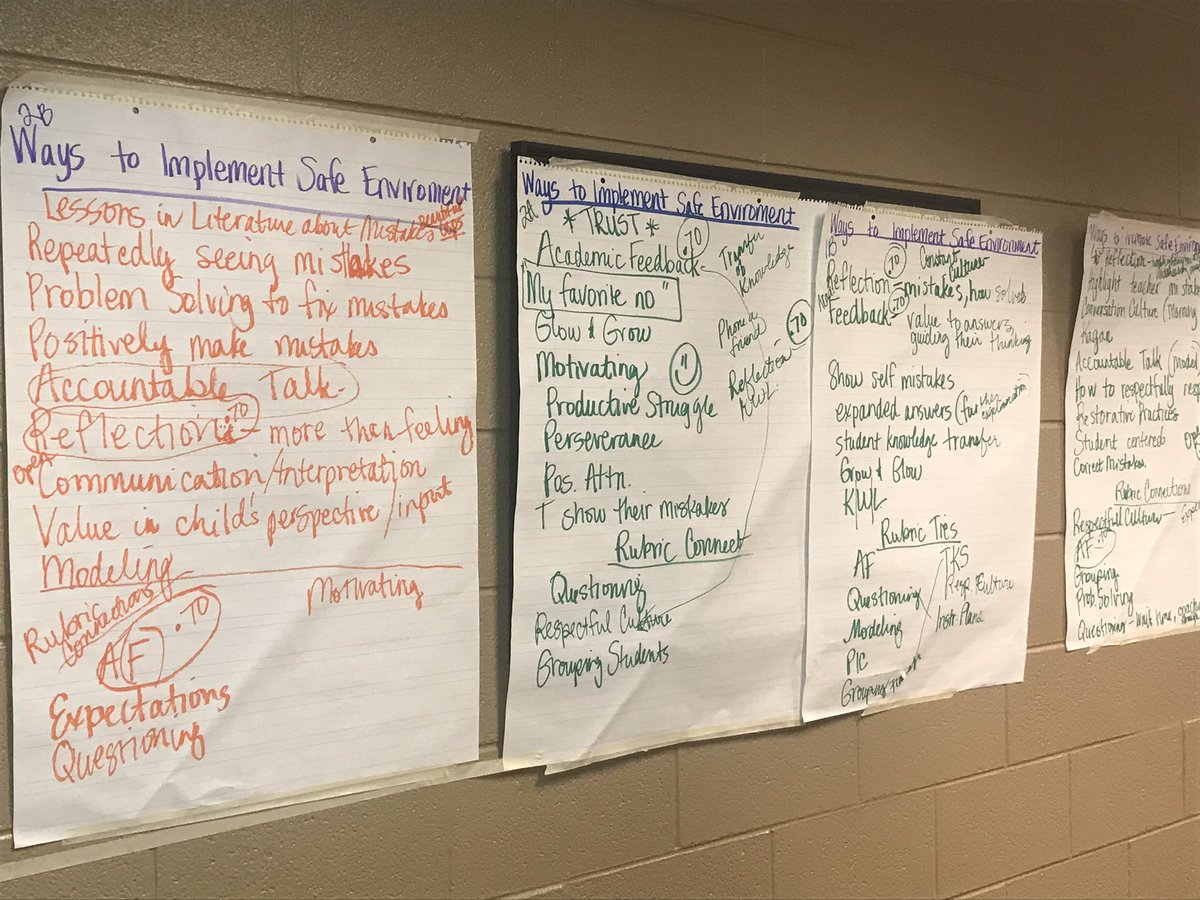 2B
Ways to Implement Safe Enviroment
Lessons in Literature about Mistakes
Repeatedly seeing mistakes
Problem Solving to fix mistakes
Positively make mistakes
Accountable Talk
Reflection .70 more than feeling
open Communication/Interpretation
Value in child's perspective/input
Modeling
Rubric Connections
Motivating
AF .70
Expectations
Questioning
Ways to Implement Safe Enviroment
2A
*TRUST*
Academic Feedback .70
Transfer of Knowledge
"My favorite no"
Glow & Grow
Phone a friend
Motivating
Reflection .70
KWL
Productive Struggle
Perseverance
Pos. Attn.
T show their mistakes
Rubric Connect
Questioning
Respectful Culture
Grouping Students
Ways to Implement Safe Environment
Reflection .70 mistakes, how solved
Culture
Feedback .70 value to answers,
guiding their thinking
Show self mistakes
expanded answers
student knowledge transfer
Grow & Glow
KWL
Rubric Ties
AF
TKS
Questioning
Resp. Culture
Modeling
Instr. Plans
PIC
Grouping
Ways to Safe
Reflection
Highlight teacher
Conversation Culture
Kagan
Accountable Talk
How to respectfully
Restorative Practices
Student centered
Correct Mistakes.
Rubric Connections
Respectful Culture
AF .70
Grouping
Prob. Solving
Questioning - wait time,